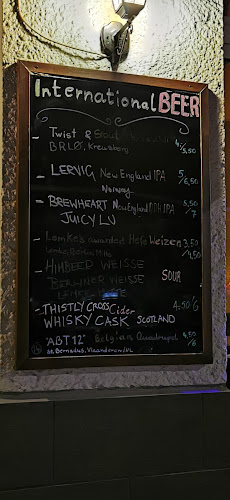 International BEER
- Twist & Stout
BRLØ, Kreuzberg 4,-/5,50
- LERVIG New England IPA 5/6,50
Norway
- BREWHEART New England DDH IPA 5,50/7
JUICY LU
- Lemkes awarded Hefe Weizen 3,50/4,50
Lemke, Berlin Mitte
- HIMBEER WEISSE
BERLINER WEISSE SOUR
LEMKE
- THISTLY CROSS Cider 4,50
WHISKY CASK SCOTLAND
"ABT 12" Belgian Quadrupel 4,50/6
St. Bernadus, Vlaanderen